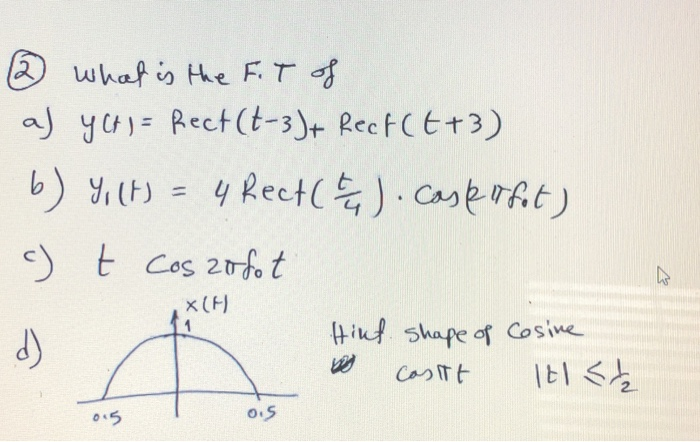 ② What is the F.T of
a) y(t) = Rect(t-3)+ Rect(t+3)
b) y₁(t) = 4 Rect(t/4) . Cos(2πf₀t)
c) t Cos 2πf₀t
d) x(t)
1
0.5 0.5
Hint shape of Cosine
cosπt |t| ≤ 1/2